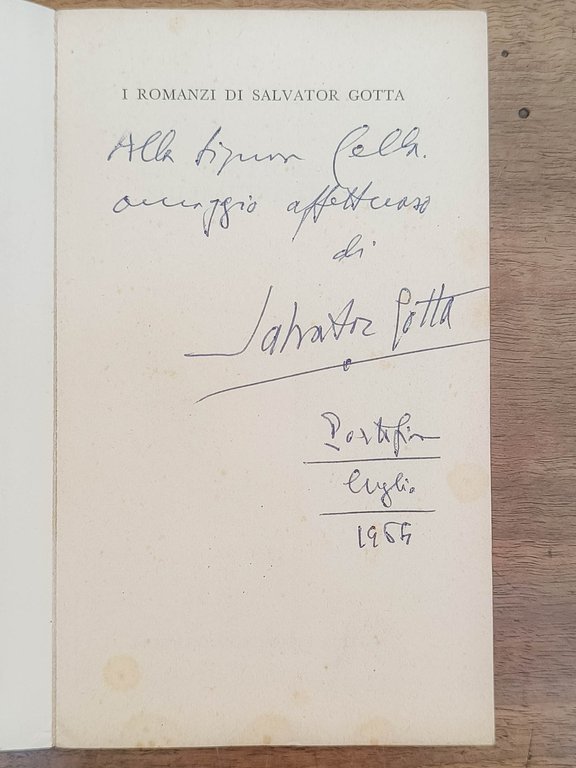 I ROMANZI DI SALVATOR GOTTA
Alla Signora Cella.
omaggio affettuoso
di
Salvator Gotta
Portofino
luglio